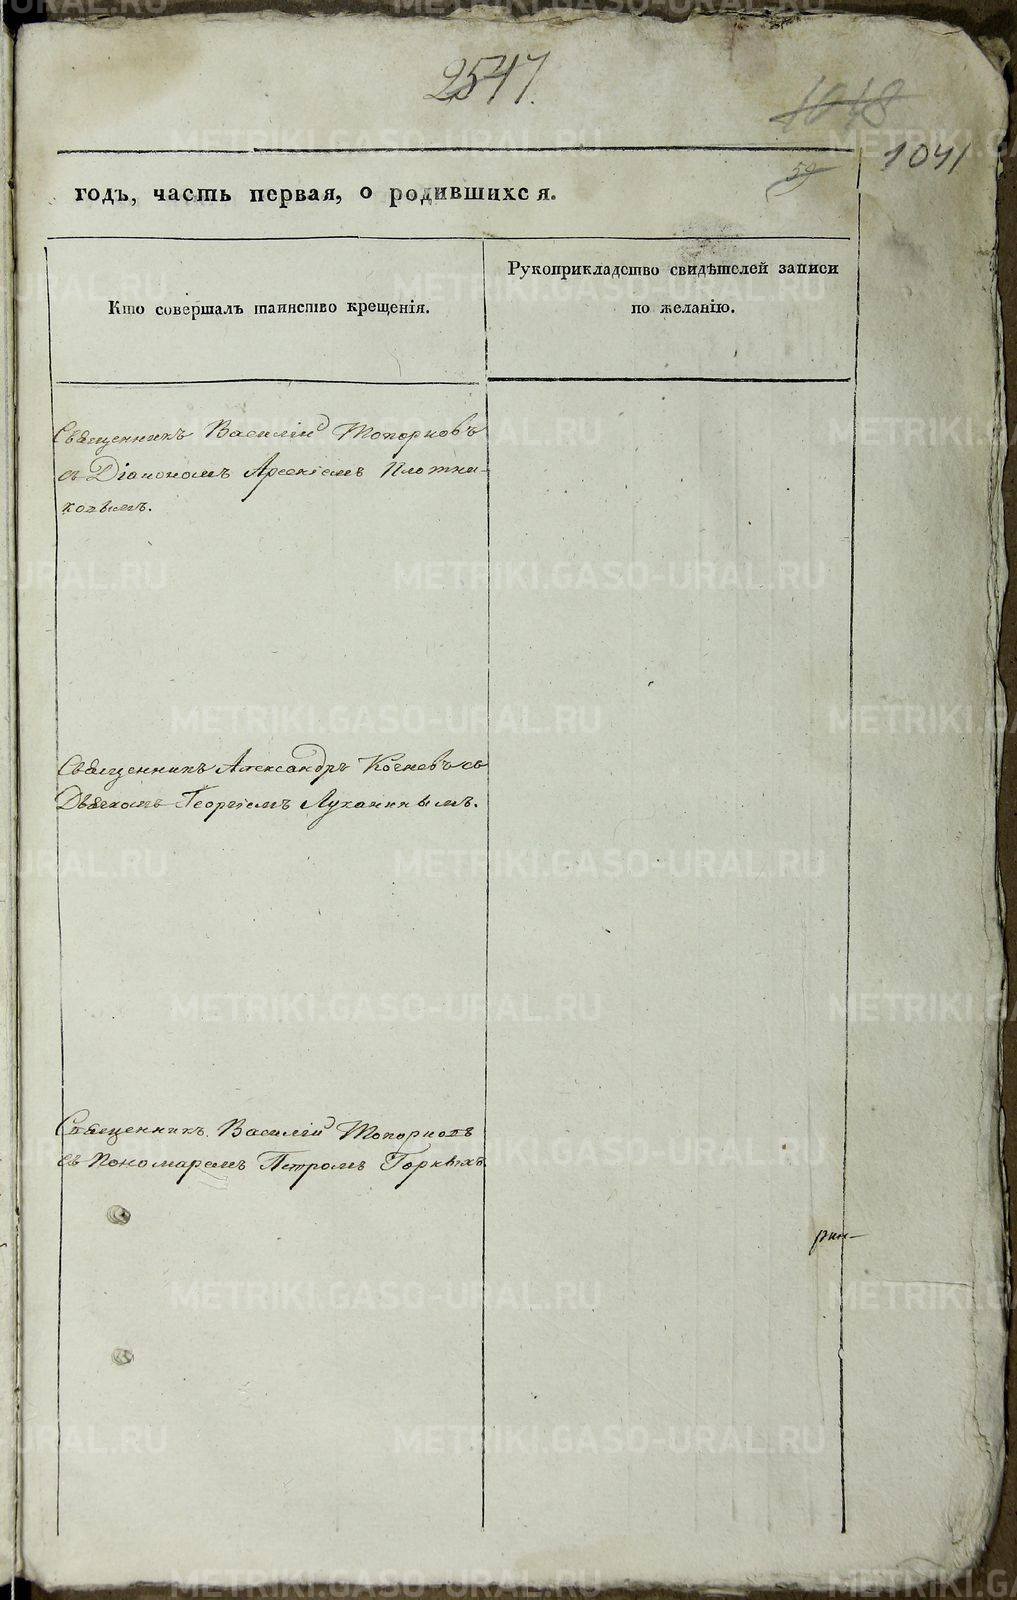 2547.
1048
1041
59
годъ, часть первая, о родившихся.
Кто совершалъ таинство крещенія.
Рукоприкладство свидѣтелей записи
по желанію.
Священникъ Василій Топорковъ
съ Діакономъ Арсеніемъ Плотни-
ковымъ.
Священникъ Александръ Кочневъ съ
Дьячкомъ Георгіемъ Луканинымъ.
Священникъ Василій Топорковъ
съ Пономаремъ Петромъ Горныхъ.
METRIKI.GASO-URAL.RU